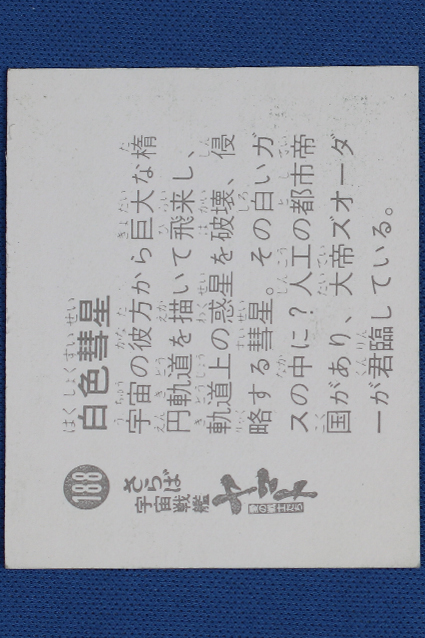 188
さらば
宇宙戦艦
ヤマト
愛の戦士たち
はくしょくすいせい
白色彗星
宇宙の彼方から巨大な楕
円軌道を描いて飛来し、
軌道上の惑星を破壊、侵
略する彗星。その白いガ
スの中に?人工の都市帝
国があり、大帝ズオーダ
ーが君臨している。